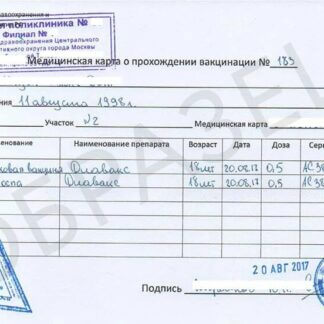 равоохранения и
я поликлиника №
Филиал №
дравоохранения Центрального
тивного округа города Москвы
Медицинская карта о прохождении вакцинации № 185
ения 11 августа 1998г.
Участок №2 Медицинская карта
менование Наименование препарата Возраст Дата Доза Сери
ковая вакцина Диавакс 18 лет 20.08.17 0,5 АС38
оспа Диавакс 18 лет 20.08.17 0,5 АС38
ОБРАЗЕЦ
20 АВГ 2017
Подпись